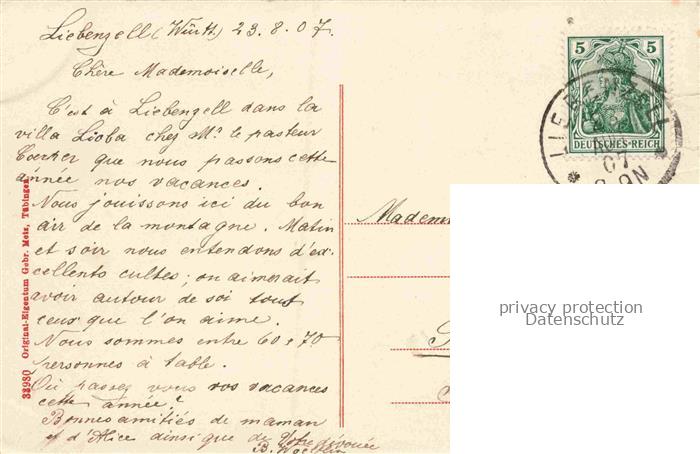 Liebenzell (Württ.) 23.8.07.
Chère Mademoiselle,
C'est à Liebenzell dans la
villa Lioba chez Mr. le pasteur
que nous passons cette
année nos vacances.
Nous jouissons ici du bon
air de la montagne. Matin
et soir nous entendons d'ex-
cellents cultes; on aimerait
avoir autour de soi tout
ceux que l'on aime.
Nous sommes entre 60 e 70
personnes à table.
Où passez vous vos vacances
cette année?
Bonnes amitiés de maman
et d'Alice ainsi que de Votre dévouée
B.
33980 Original-Eigentum Gebr. Metz, Tübingen
5 5
DEUTSCHES-REICH
LIEBENZELL
07
Madem
privacy protection
Datenschutz